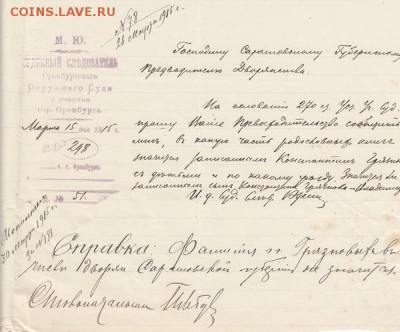 COINS.LAVE.RU
№78
26 Марта 1915 г.
М. Ю.
СУДЕБНЫЙ СЛѢДОВАТЕЛЬ
Оренбургскаго
Окружного Суда
участка
гор. Оренбурга.
Марта 15 дня 1915 г.
№ 298
г. Оренбургъ
№ 51.
Господину Саратовскому Губернскому
Предводителю Дворянства.
На основаніи 270 ст. Уст. Уг. Суд.
прошу Ваше Превосходительство сообщить
мнѣ, въ какую часть родословныхъ книгъ
значится записаннымъ Константинъ
съ дѣтьми и по какому роду значится ли
записаннымъ сынъ Константина
И. д. Суд. Слѣд.
30 Марта 1915 г.
Справка: Фамилія г. Грязновыхъ въ
числѣ дворянъ Саратовской губерніи не значится.
Столоначальникъ